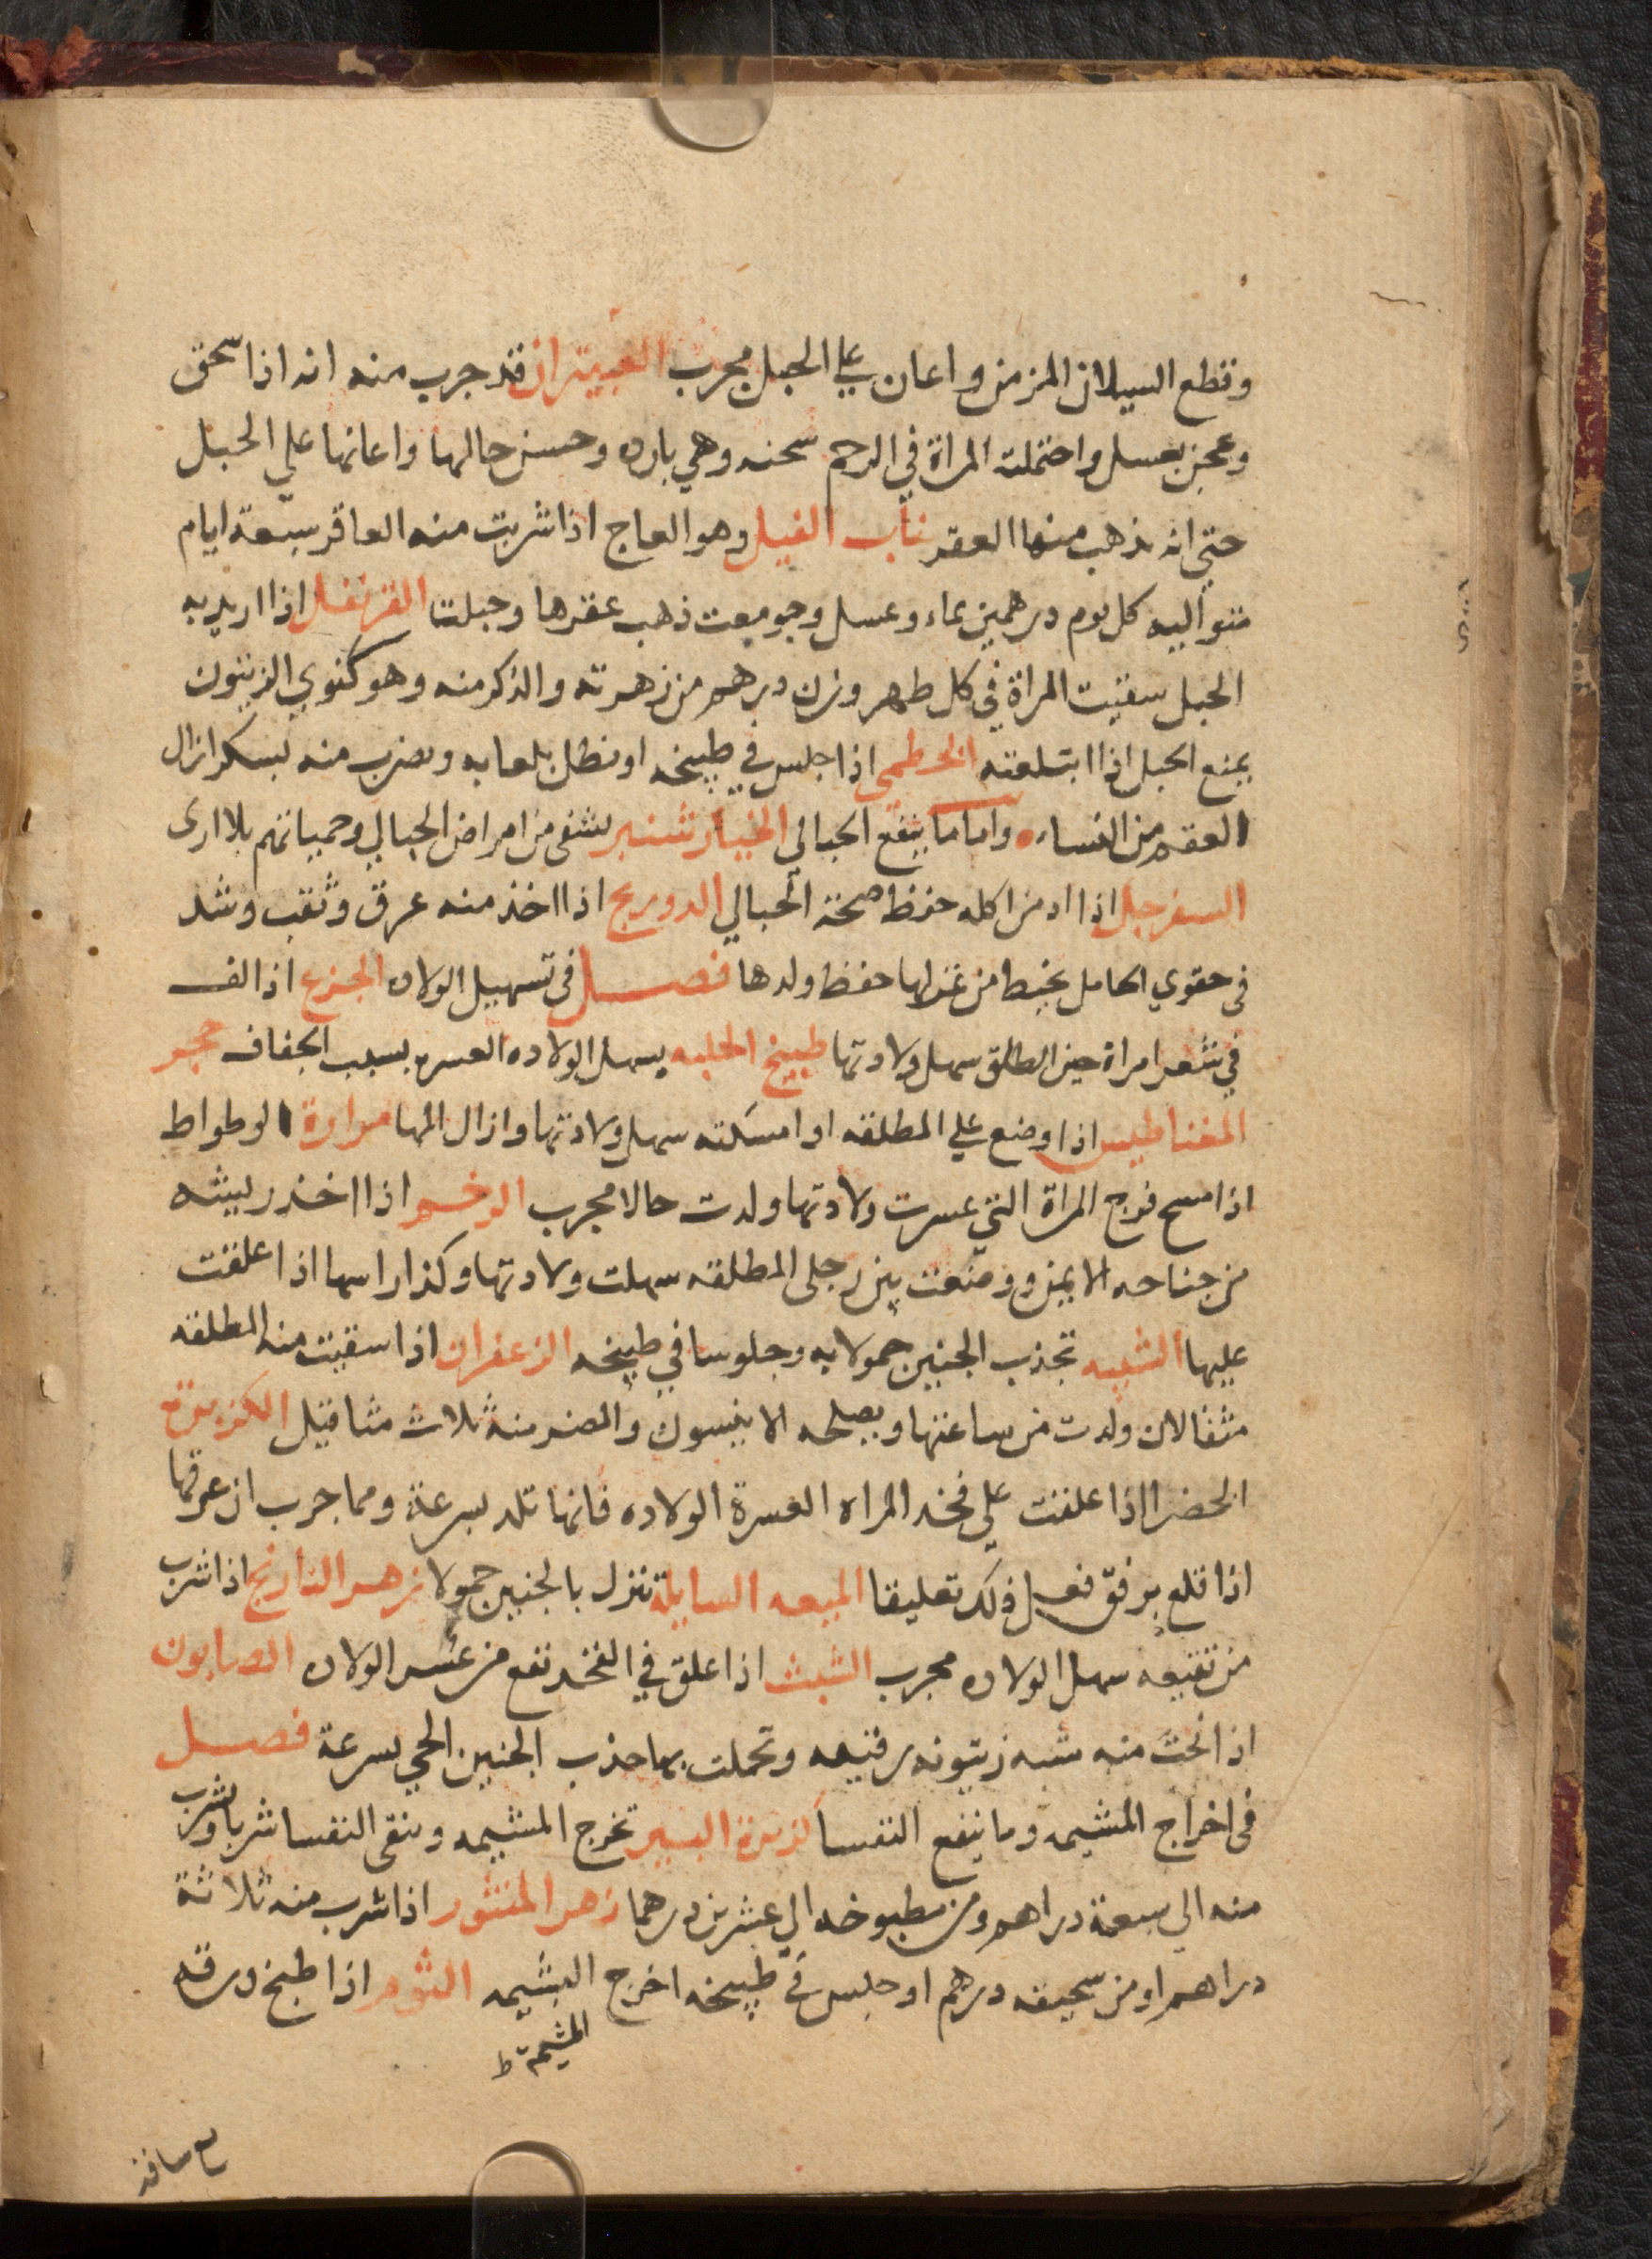 وقطع السيلان المزمن واعان علي الحبل مجرب العبيتران قد جرب منه انه اذا سحق
وعجن بعسل واحتملته المراة في الرحم سخنه وهي بارده وحسن حالها واعانها علي الحبل
حتي انه يذهب منها العقر ناب الفيل وهو العاج اذا شربت منه العاقر سبعة ايام
متواليه كل يوم درهمين بماء وعسل وجومعت ذهب عقرها وحبلت القرنفل اذا اريد به
الحبل سقيت المراة في كل طهر وزن درهم من زهرته والذكر منه وهو كنوي الزيتون
يمنع الحبل اذا ابتلعته الخطمي اذا جلس في طبيخه او نطل بلعابه وضرب منه بسكر ازال
العقر من النساء واما ما ينفع الحبالي الخيار شنبر يشفي من امراض الحبالي وحمياتهم بلا اذي
السفرجل اذا ادمن اكله حفظ صحة الحبالي الدوريج اذا اخذ منه عرق وثقب وشد
في حقوي الحامل بخيط من غزلها حفظ ولدها فصل في تسهيل الولاده الجزع اذا لف
في شعر امراة حين الطلق سهل ولادتها طبيخ الحلبه يسهل الولاده العسره بسبب الجفاف حجر
المغناطيس اذا وضع علي المطلقه او امسكته سهل ولادتها وازال المها مرارة الوطواط
اذا مسح فرج المراة التي عسرت ولادتها ولدت حالا مجرب الرخم اذا اخذ ريشه
من جناحه الايمن ووضعت بين رجلي المطلقه سهلت ولادتها وكذا راسها اذا علقت
عليها الشبيه تجذب الجنين حمولا به وجلوسا في طبيخه الزعفران اذا سقيت منه المطلقه
مثقالان ولدت من ساعتها ويصلحه الانيسون والمضر منه ثلاث مثاقيل الكزبرة
الخضرا اذا علقت علي فخد المراه العسرة الولاده فانها تلد بسرعة ومما جرب ان عرقها
اذا قلع برفق فعل ذلك تعليقا الميعه السايلة تنزل بالجنين حمولا زهر النارنج اذا شرب
من نقيعه سهل الولاده مجرب الشبث اذا علق في الفخد نفع من عسر الولاده الصابون
اذا نحت منه شبه زيتونه رفيعه وتحملت بها جذب الجنين الحي بسرعة فصل
في اخراج المشيمه وما ينفع النفسا كزبرة البير تخرج المشيمه وتنقي النفسا شربا وشرب
منه الي سبعة دراهم ومن مطبوخه الي عشرين درهما زهر المنثور اذا شرب منه ثلاثة
دراهم او من سحيقه درهم او جلس في طبيخه اخرج المشيمه الثوم اذا طبخ ورقه
المشيمة ط